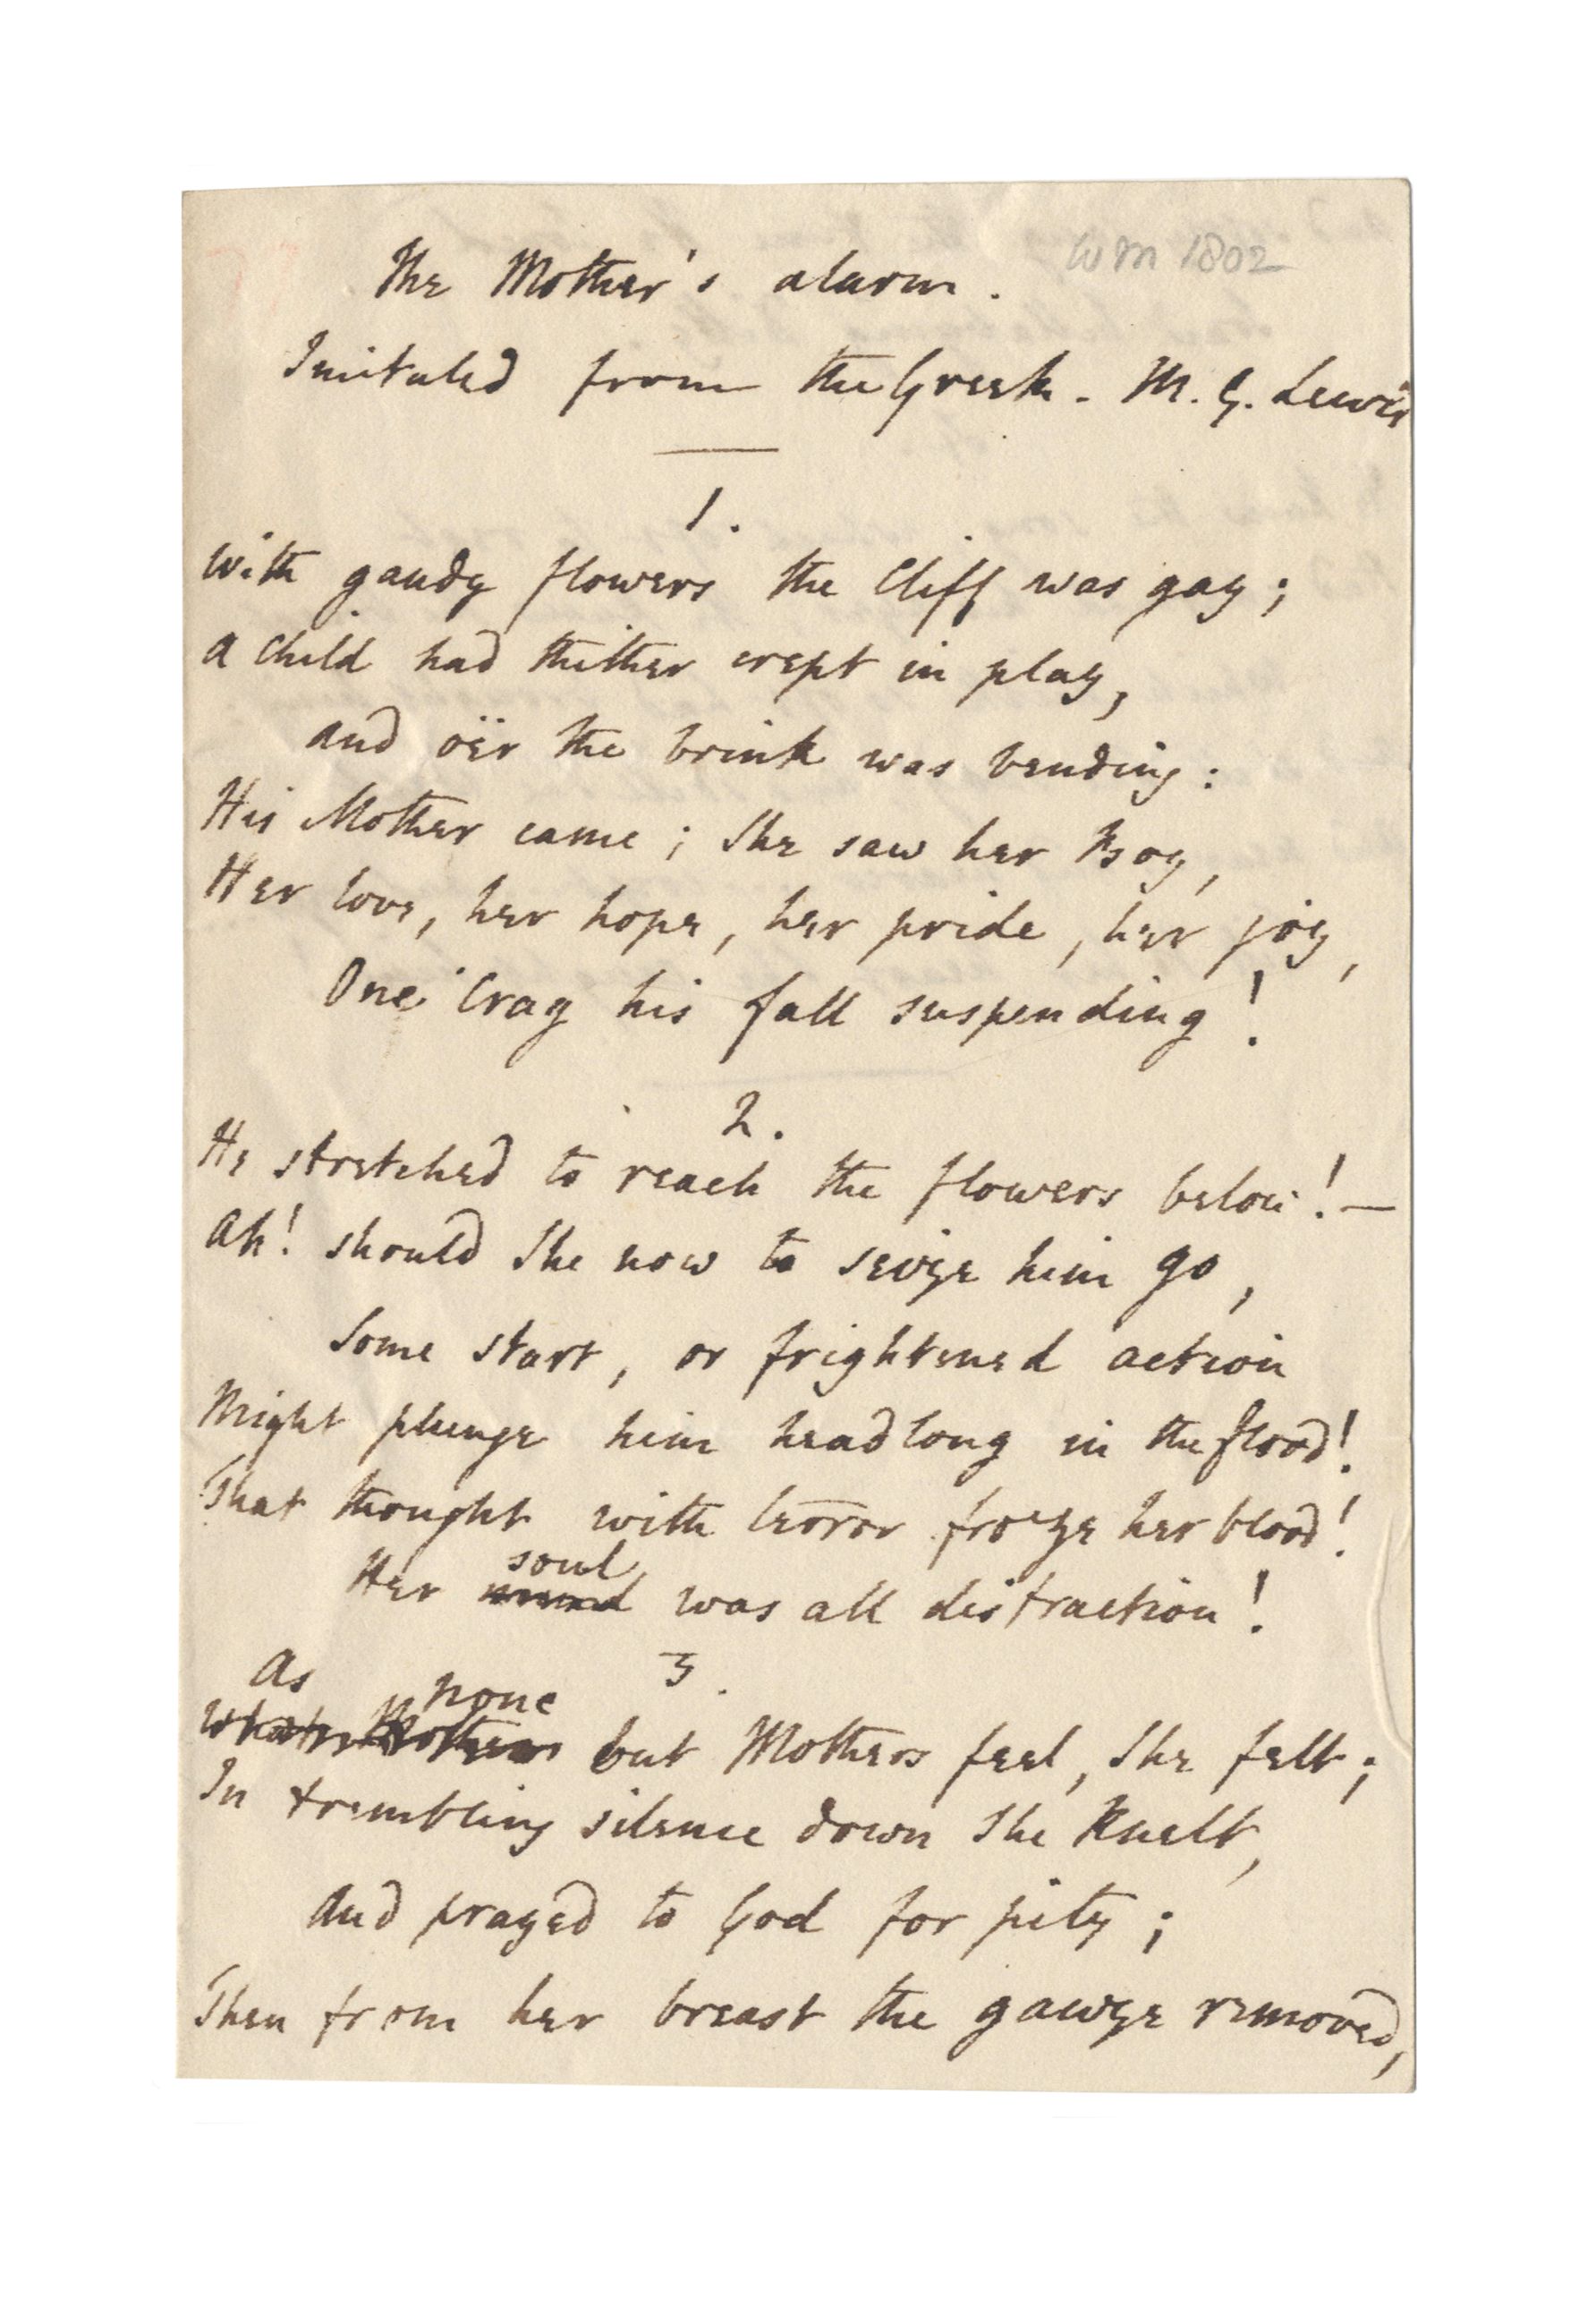 Wm 1802
The Mother's alarm.
Imitated from the Greek. M. G. Lewis
1.
With gaudy flowers the Cliff was gay;
A Child had thither crept in play,
And o'er the brink was bending:
His Mother came; She saw her Boy,
Her love, her hope, her pride, her joy,
One Crag his fall suspending!
2.
He stretched to reach the flowers below! —
Ah! should She now to seize him go,
Some start, or frightened action
Might plunge him headlong in the flood!
That thought with terror froze her blood!
soul
Her mind was all distraction!
3.
As none
What Mothers but Mothers feel, She felt;
In trembling silence down She knelt,
And prayed to God for pity;
Then from her breast the gawze removed,